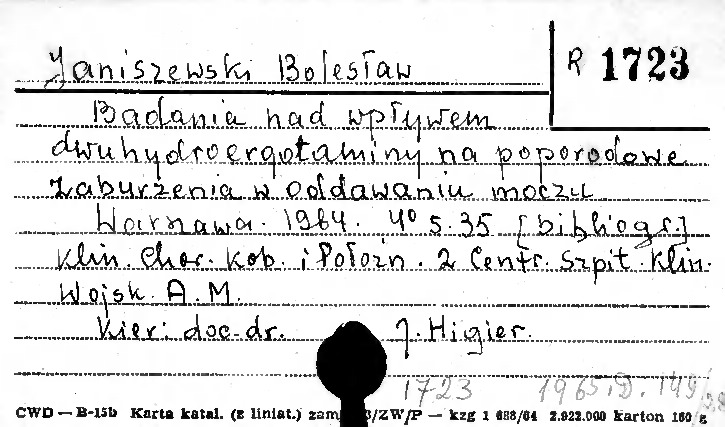 Janiszewski Bolesław
R 1723
Badania nad wpływem
dwuhydroergotaminy na poporodowe
zaburzenia w oddawaniu moczu
Warszawa. 1964. 4° s. 35 [bibliogr.]
Klin. Chor. Kob. i Położn. 2 Centr. Szpit. Klin.
Wojsk. A. M.
Kier: doc. dr. J. Higier.
1723 1965.D. 149
CWD — B-15b Karta katal. (z liniat.) zam /ZW/P — kzg 1 688/64 2.922.000 karton 160 g